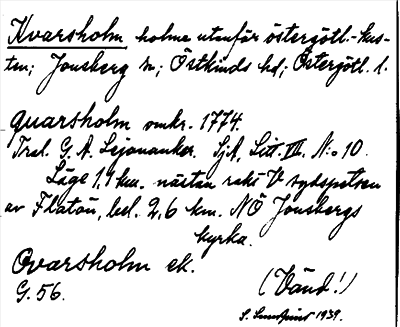 Kvarsholm holme utanför östergötl.-kus-
ten; Jonsberg sn; Östkinds hd; Östergötl. l.
quarsholm omkr. 1774.
Trol. G. A. Lejonanckar. SjA, Litt. III. N:o 10.
Läge 1,1 km. nästan rakt V sydspetsen
av Flatön, bel. 2,6 km. NO Jonsbergs
kyrka.
Qvarsholm ek.
G. 56.
(Vänd!)
S. 1939.